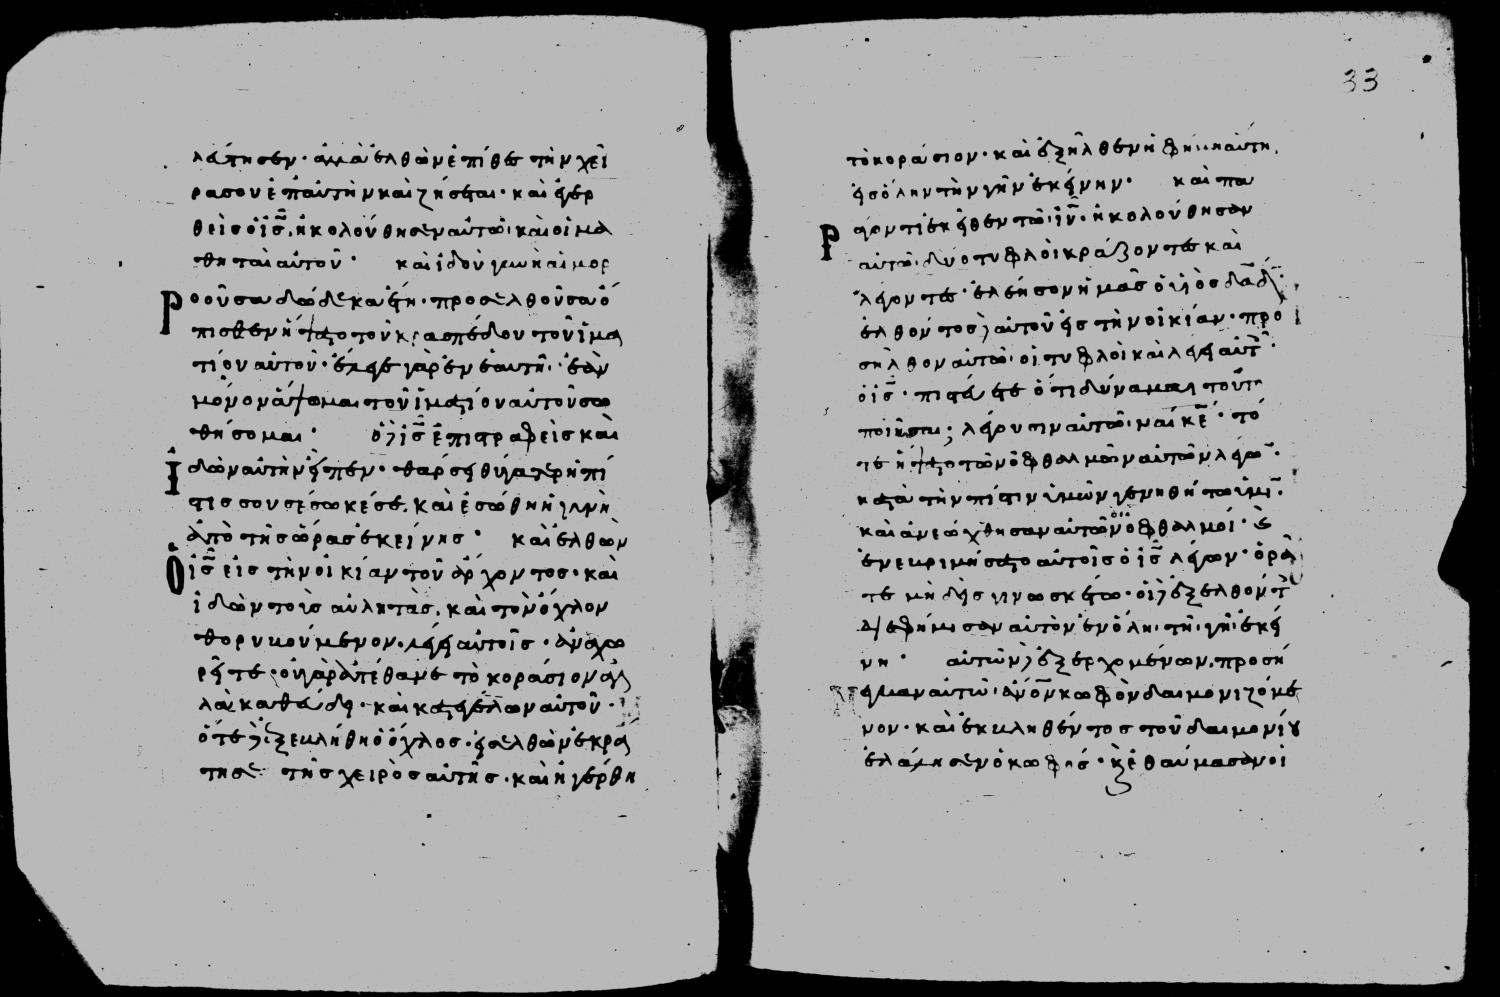 λεύτησεν· ἀλλὰ ἐλθὼν ἐπίθες τὴν χεῖ
ρα σου ἐπ αὐτὴν καὶ ζήσεται· καὶ ἐγερ
θεὶς ὁ ἰς̅, ἠκολούθησεν αὐτῶ· καὶ οἱ μα
θηταὶ αὐτοῦ· καὶ ἰδοὺ γυνὴ αἱμορ
ροοῦσα δώδεκα ἔτη· προσελθοῦσα ὄ
πισθεν ἥψατο τοῦ κρασπέδου τοῦ ἱμα
τίου αὐτοῦ· ἔλεγε γὰρ ἐν ἑαυτῆ· ἐὰν
μόνον ἅψωμαι τοῦ ἱματίου αὐτοῦ σω
θήσομαι· ὁ δὲ ἰς̅ ἐπιστραφεὶς καὶ
ἰδὼν αὐτὴν εἶπεν· θάρσει θύγατερ ἡ πί
στις σου σέσωκέ σε. καὶ ἐσώθη ἡ γυνὴ
ἀπὸ τῆς ὥρας ἐκείνης· καὶ ἐλθὼν
ὁ ἰς̅ εἰς τὴν οἰκίαν τοῦ ἄρχοντος· καὶ
ἰδὼν τοὺς αὐλητὰς, καὶ τὸν ὄχλον
θορυβούμενον. λέγει αὐτοῖς· ἀναχω
ρεῖτε· οὐ γὰρ ἀπέθανε τὸ κοράσιον ἀλ
λὰ καθεύδει· καὶ κατεγέλων αὐτοῦ·
ὅτε δὲ ἐξεβλήθη ὁ ὄχλος· εἰσελθὼν ἐκρά
τησε τῆς χειρὸς αὐτῆς· καὶ ἠγέρθη
33
τὸ κοράσιον· καὶ ἐξῆλθεν ἡ φήμη αὕτη,
εἰς ὅλην τὴν γῆν ἐκείνην· καὶ πα
ράγοντι ἐκεῖθεν τῶ ἰυ̅· ἠκολούθησαν
αὐτῶ· δύο τυφλοὶ κράζοντες καὶ
λέγοντες· ἐλέησον ἡμᾶς ὁ υἱὸς δαδ̅·
ἐλθόντος δὲ αὐτοῦ εἰς τὴν οἰκίαν· προ
σῆλθον αὐτῶ· οἱ τυφλοὶ καὶ λέγει αὐτ
ὁ ἰς̅· πιστεύετε ὅτι δύναμαι τοῦτο
ποιῆσαι; λέγουσιν αὐτῶ· ναί κε̅· τό
τε ἥψατο τῶν ὀφθαλμῶν αὐτῶν λέγω·
κατὰ τὴν πίστιν ὑμῶν γενηθήτω ὑμῖ·
καὶ ἀνεώχθησαν αὐτῶν οἱ ὀφθαλμοί· ϗ
ἐνεβριμήσατο αὐτοῖς ὁ ἰς̅ λέγων· ὁρᾶ
τε μηδεὶς γινωσκέτω· οἱ δὲ ἐξελθόντ
διεφήμισαν αὐτὸν ἐν ὅλη· τῆ· γῆ· ἐκεί
νη· αὐτῶν δὲ ἐξερχομένων. προσή
νεγκαν αὐτῶ· ἀνον̅ κωφὸν δαιμονιζόμε
νον· καὶ ἐκβληθέντος τοῦ δαιμονίου
ἐλάλησεν ὁ κωφός· ϗ ἐθαύμασαν οἱ